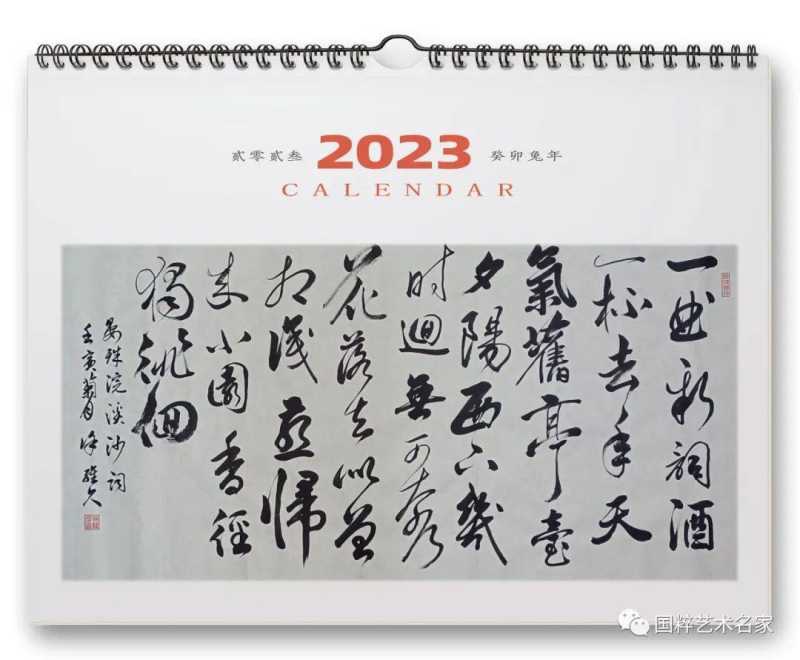 贰零贰叁 2023 癸卯兔年
CALENDAR
一曲新詞酒
一杯去年天
氣舊亭臺
夕陽西下幾
时迴無可奈何
花落去似曾
相識燕歸
来小園香徑
獨徘徊
晏殊浣溪沙詞
壬寅菊月
国粹艺术名家